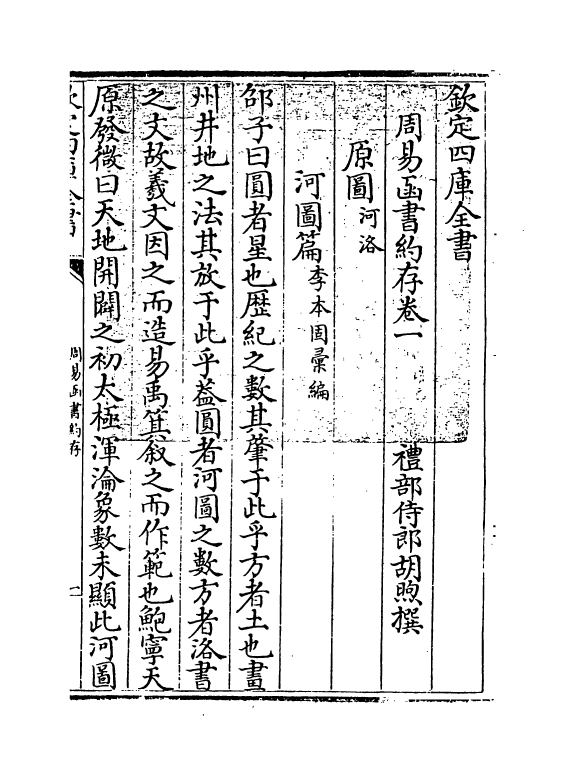 欽定四庫全書
周易函書約存卷一　禮部侍郎胡煦撰
原圖河洛
河圖篇李本固彙編
邵子曰圓者星也歴紀之數其肇于此乎方者土也畫
州井地之法其放于此乎葢圓者河圖之數方者洛書
之文故羲文因之而造易禹箕叙之而作範也鮑寧天
原發微曰天地開闢之初太極渾淪象數未顯此河圖
欽定四庫全書
周易函書約存
一